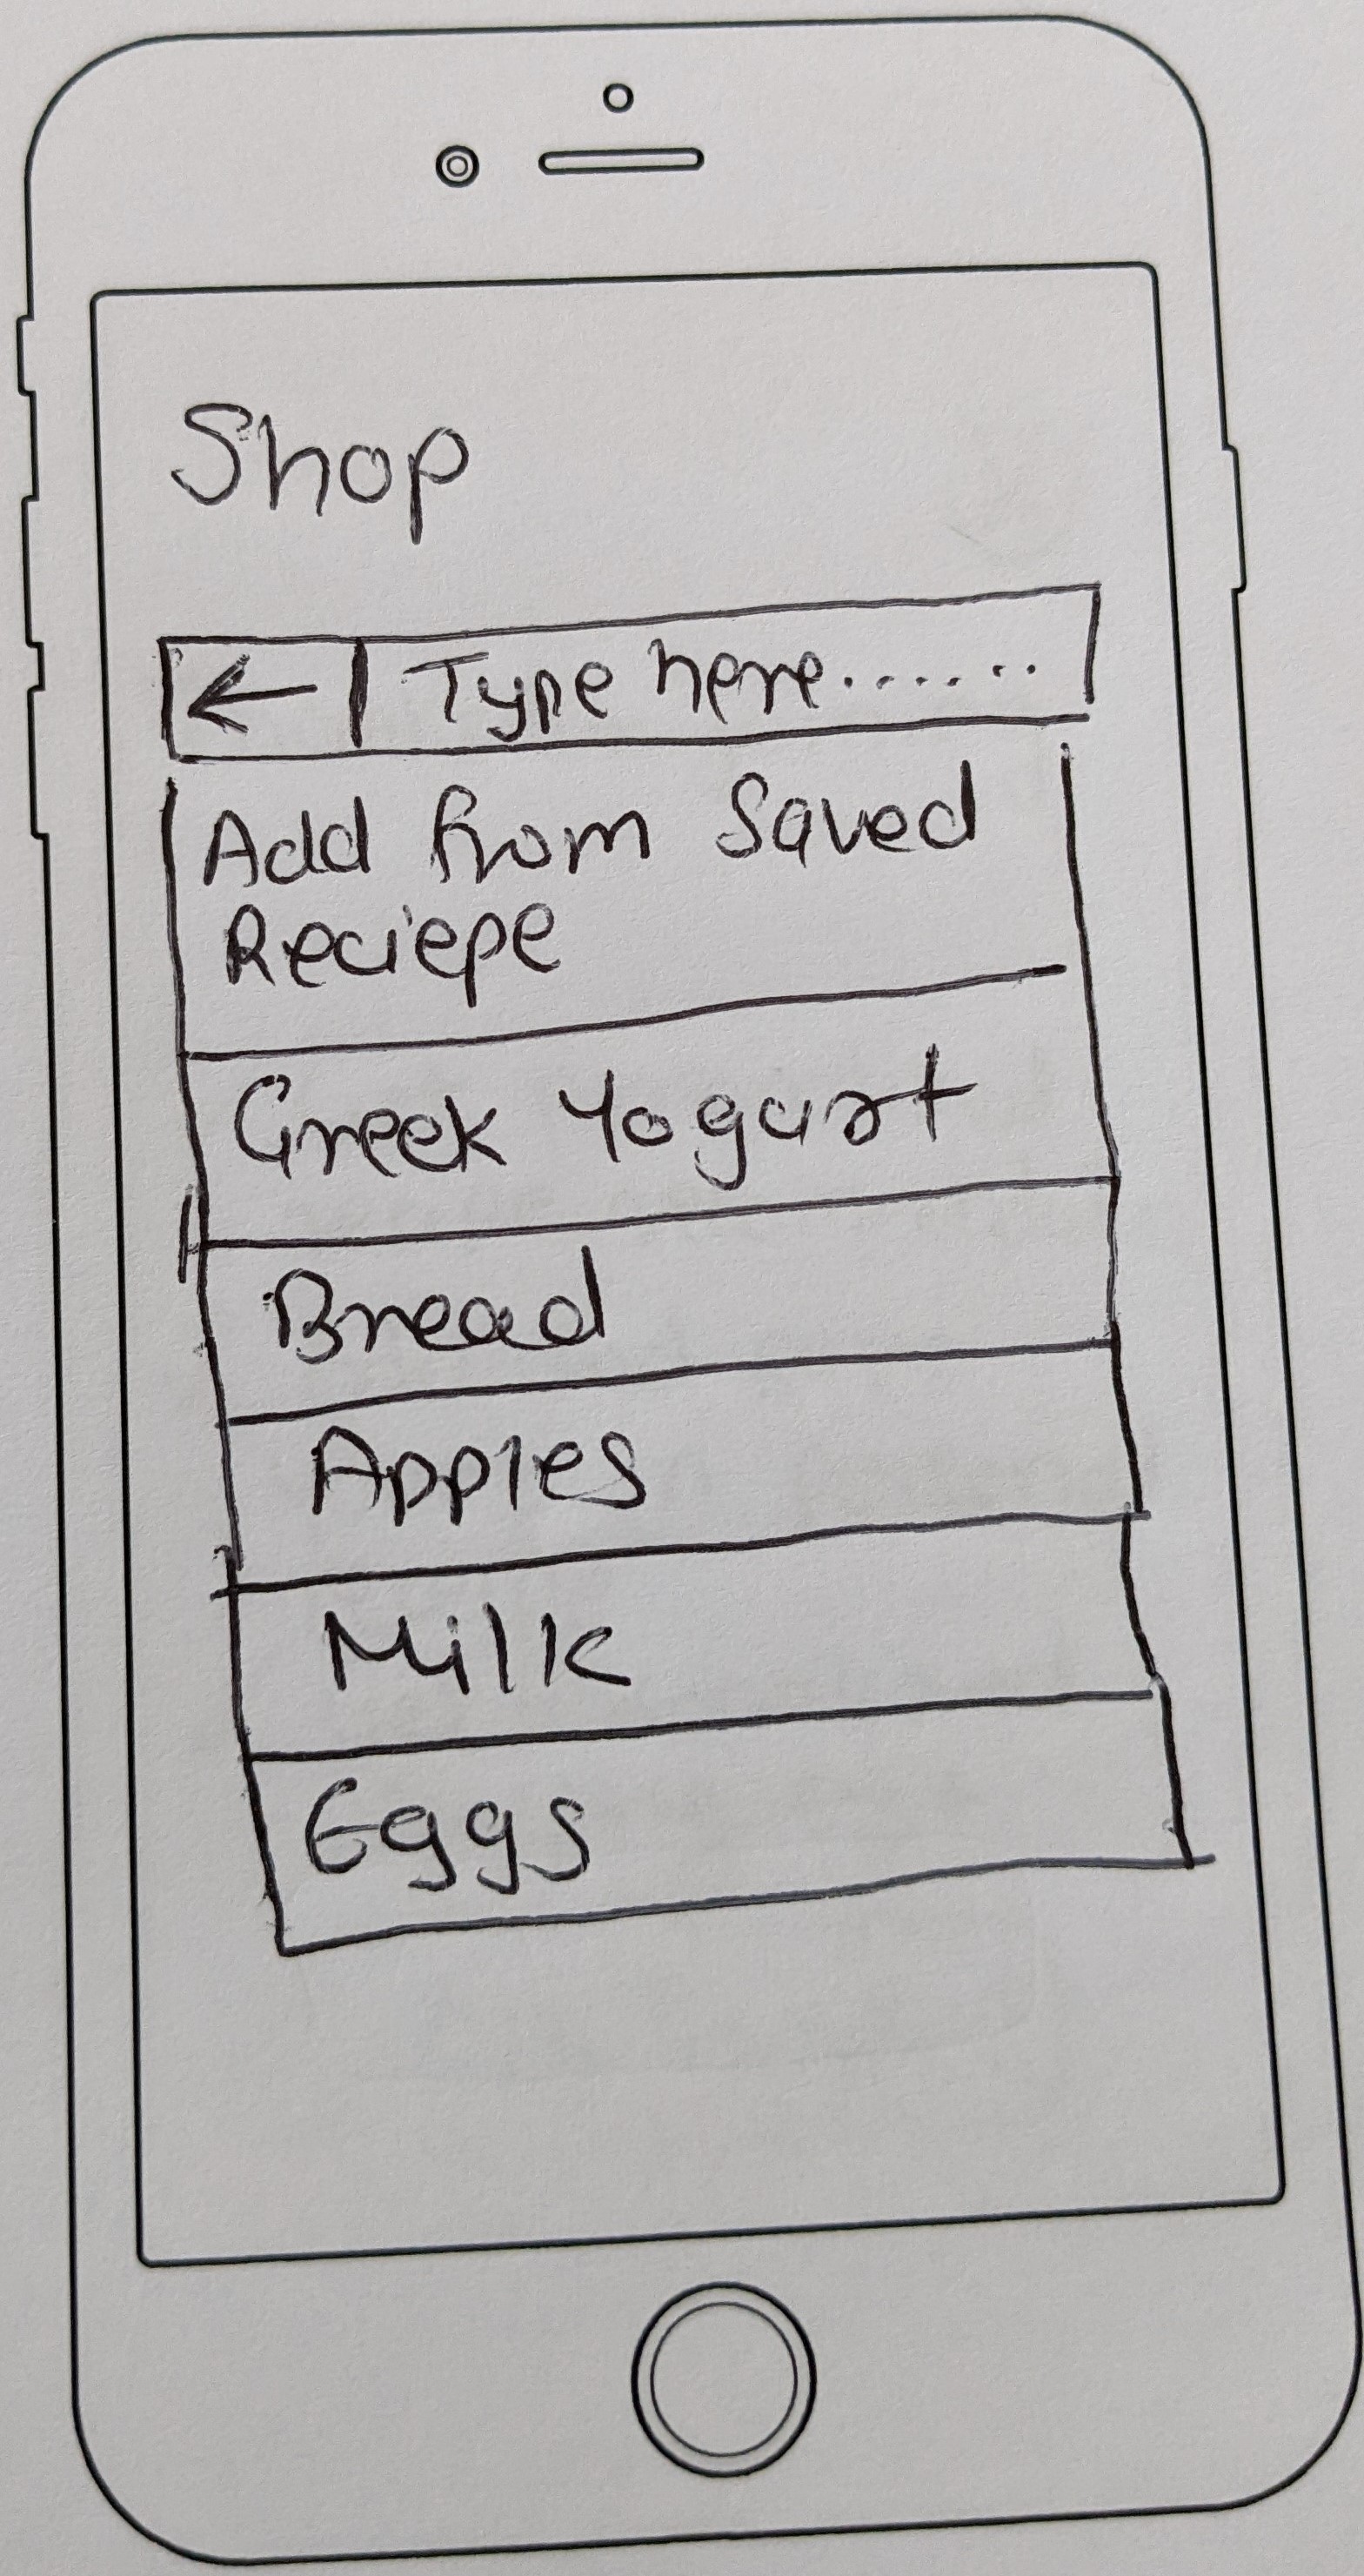 Shop
← Type here.......
Add from Saved
Reciepe
Greek Yogurt
Bread
Apples
Milk
Eggs